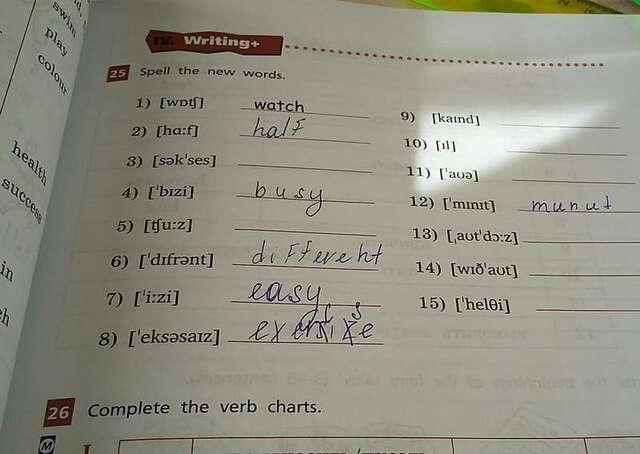 swim
play
colour
health
success
in
IV. Writing+
25 Spell the new words.
1) [wɒtʃ] watch
2) [hɑ:f] half
3) [sək'ses]
4) ['bɪzi] busy
5) [tʃu:z]
6) ['dɪfrənt] different
7) ['i:zi] easy
8) ['eksəsaɪz] exercise
9) [kaɪnd]
10) [ɪl]
11) ['aʊə]
12) ['mɪnɪt] munut
13) [ˌaʊt'dɔ:z]
14) [wɪð'aʊt]
15) ['helθi]
26 Complete the verb charts.
M